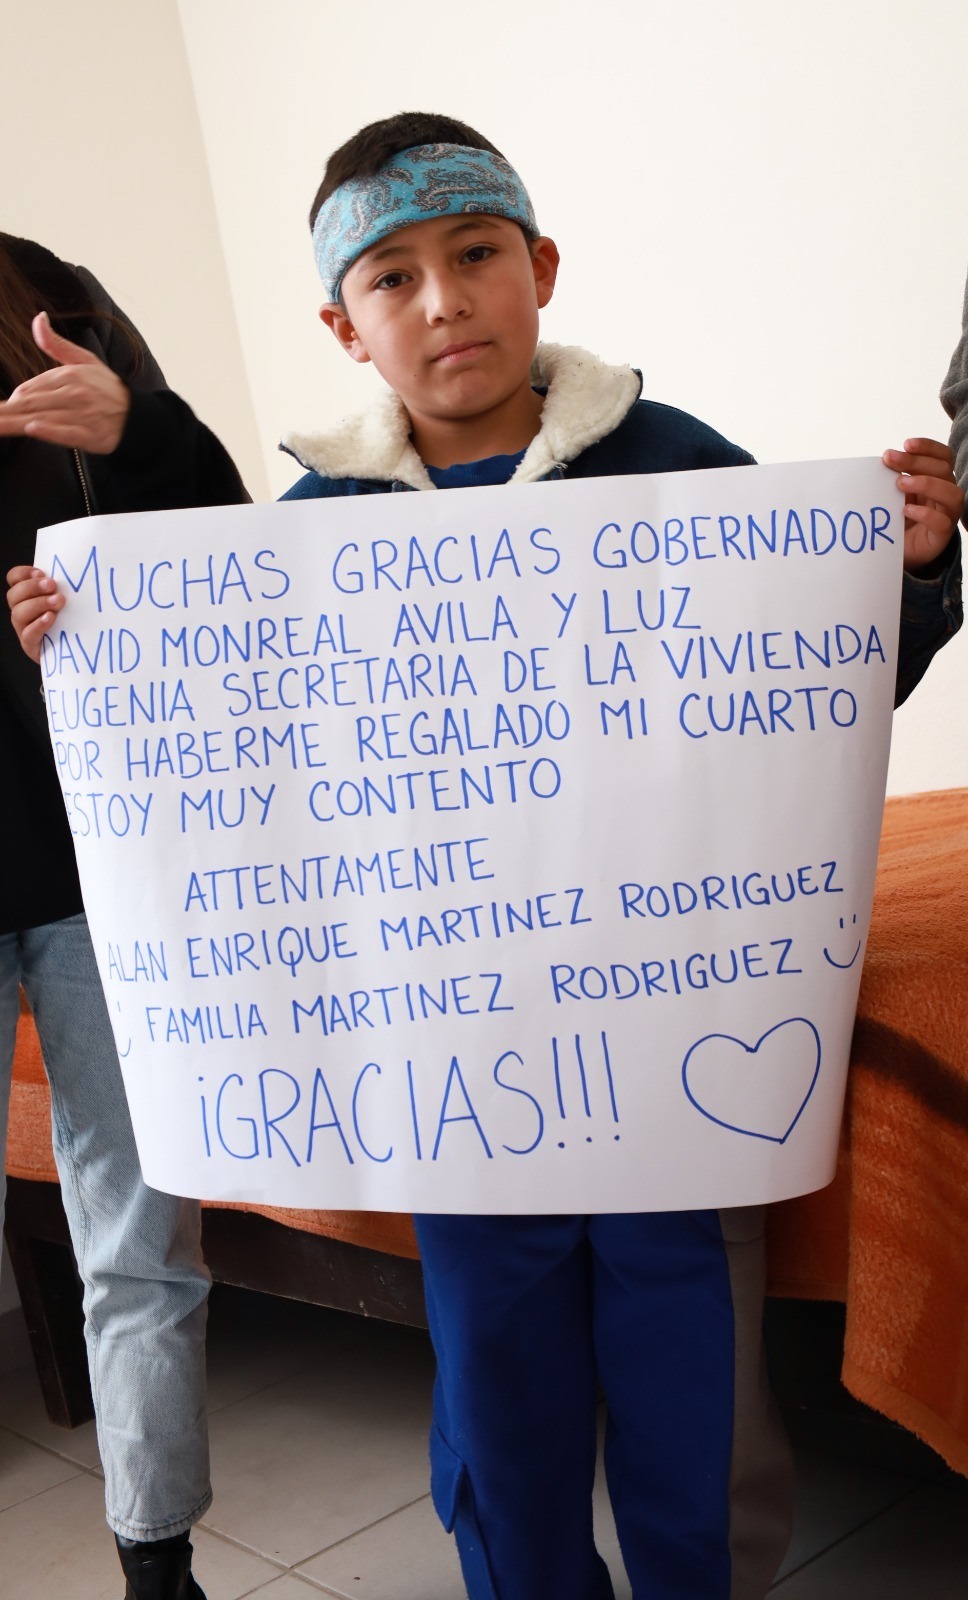 MUCHAS GRACIAS GOBERNADOR
DAVID MONREAL AVILA Y LUZ
EUGENIA SECRETARIA DE LA VIVIENDA
POR HABERME REGALADO MI CUARTO
ESTOY MUY CONTENTO
ATTENTAMENTE
ALAN ENRIQUE MARTINEZ RODRIGUEZ
FAMILIA MARTINEZ RODRIGUEZ
¡GRACIAS!!!